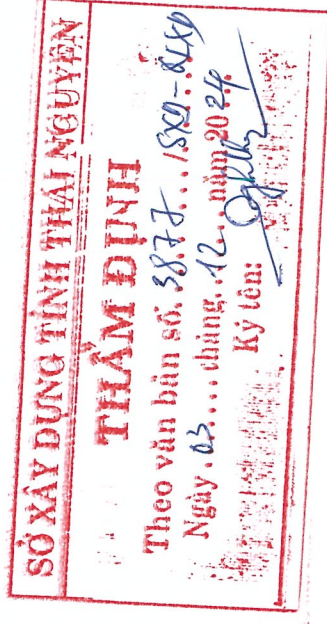 SỞ XÂY DỰNG TỈNH THÁI NGUYÊN
THẨM ĐỊNH
Theo văn bản số. 3877 /SXD-QLXD
Ngày. 03 tháng. 12 năm 2024
Ký tên: